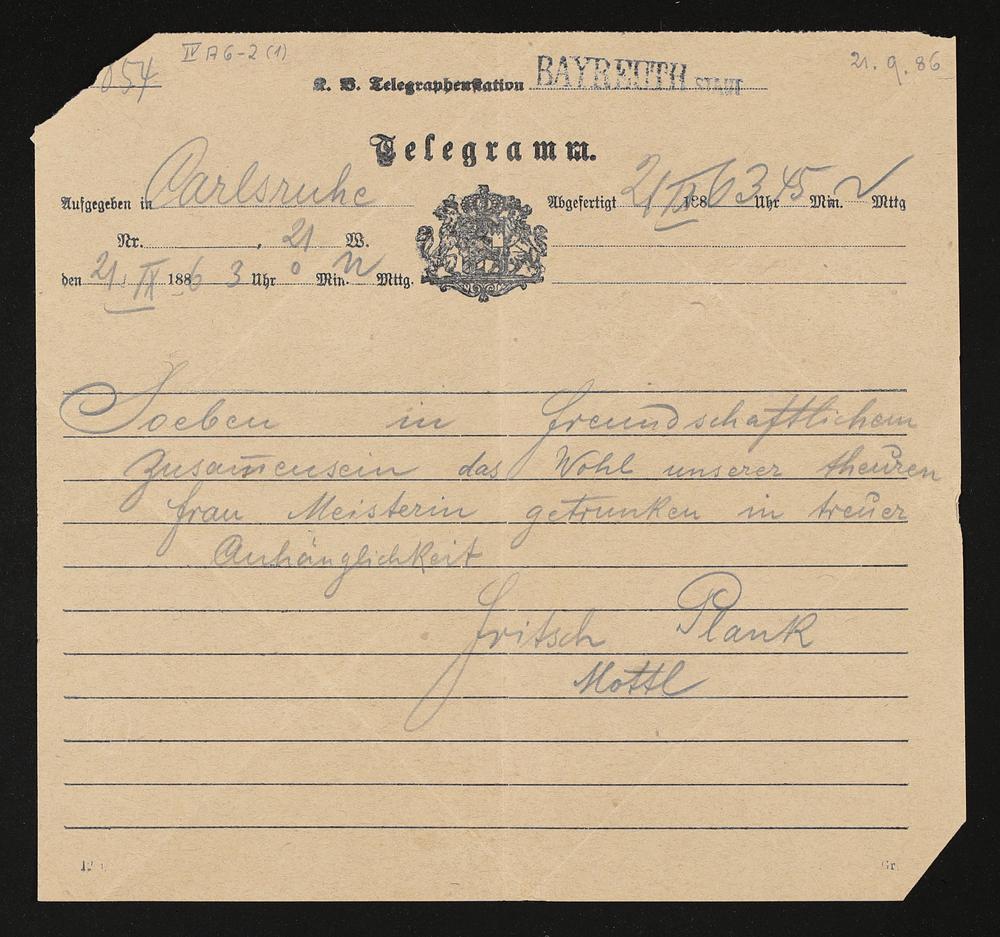 IV A6-2 (1)
054
21.9.86
K. B. Telegraphenstation BAYREUTH STADT
Telegramm.
Aufgegeben in Carlsruhe
Abgefertigt 21/IX 1886 3 Uhr 45 Min. N Mttg
Nr. , 21 W.
den 21. IX 1886 3 Uhr 0 Min. N Mttg.
Soeben in freundschaftlichem
Zusam̅ensein das Wohl unserer theuren
Frau Meisterin getrunken in treuer
Anhänglichkeit
Fritsch Plank
Mottl